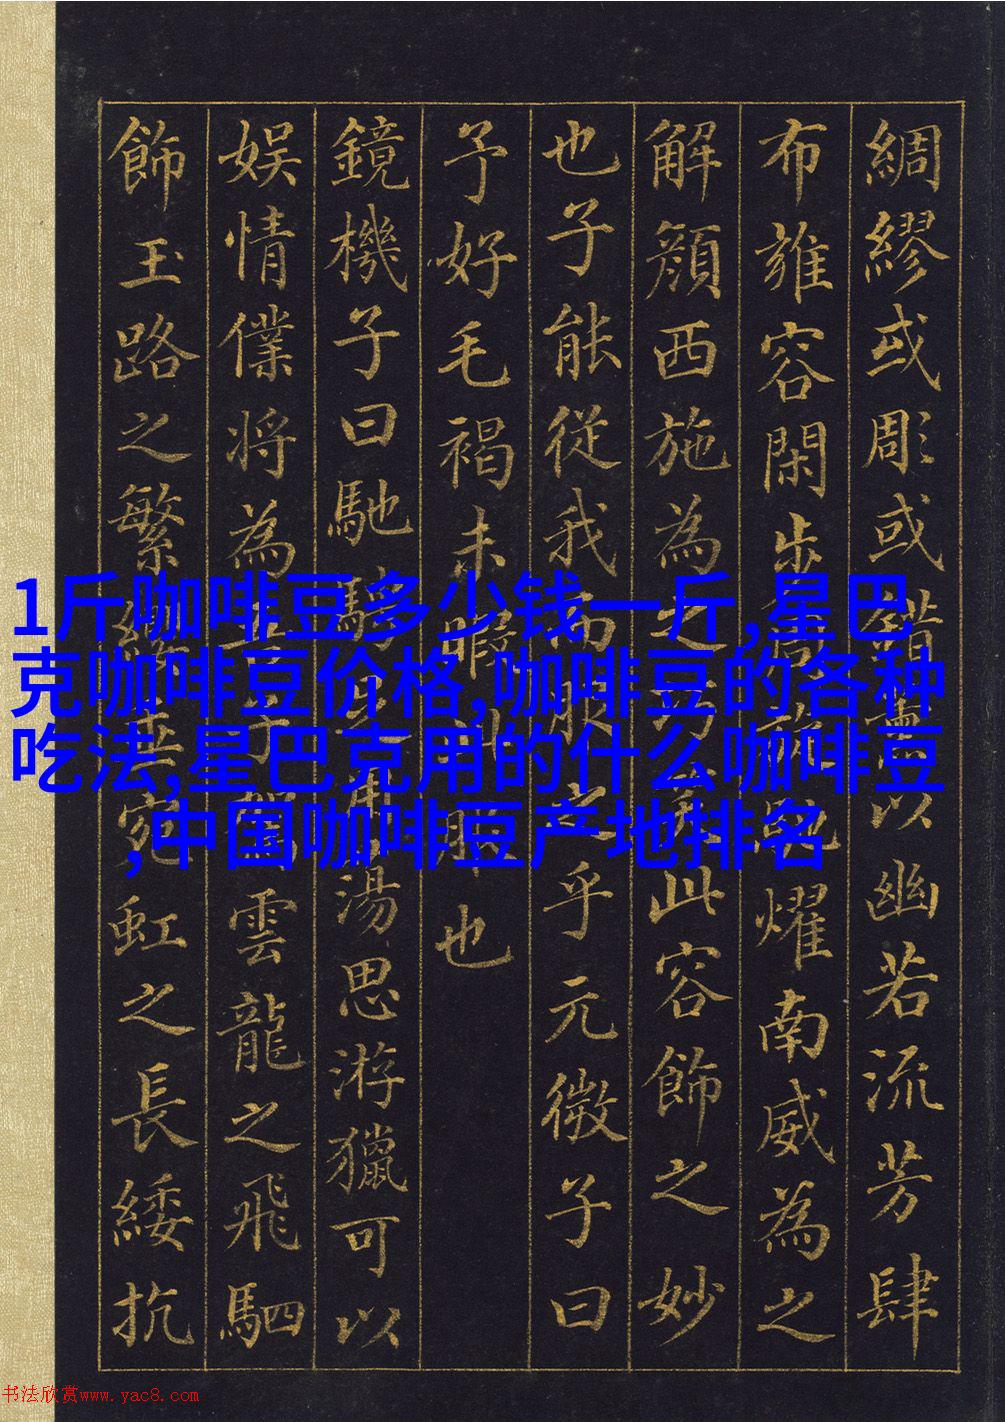 綢繆或彫或錯以幽若流芳肆
布雍容閑步周旋馳燿南威為之
解顏西施為之巧笑此容飾之妙
也子能從我而服之乎元微子曰
予好毛褐未暇此服也
鏡機子曰馳騁足用蕩思游獵可以
娛情僕將為吾子駕雲龍之飛駟
飾玉路之繁纓垂宛虹之長綏抗
1斤咖啡豆多少钱一斤,星巴
克咖啡豆价格,咖啡豆的各种
吃法,星巴克用的什么咖啡豆
,中国咖啡豆产地排名
书法欣赏www.yac8.com